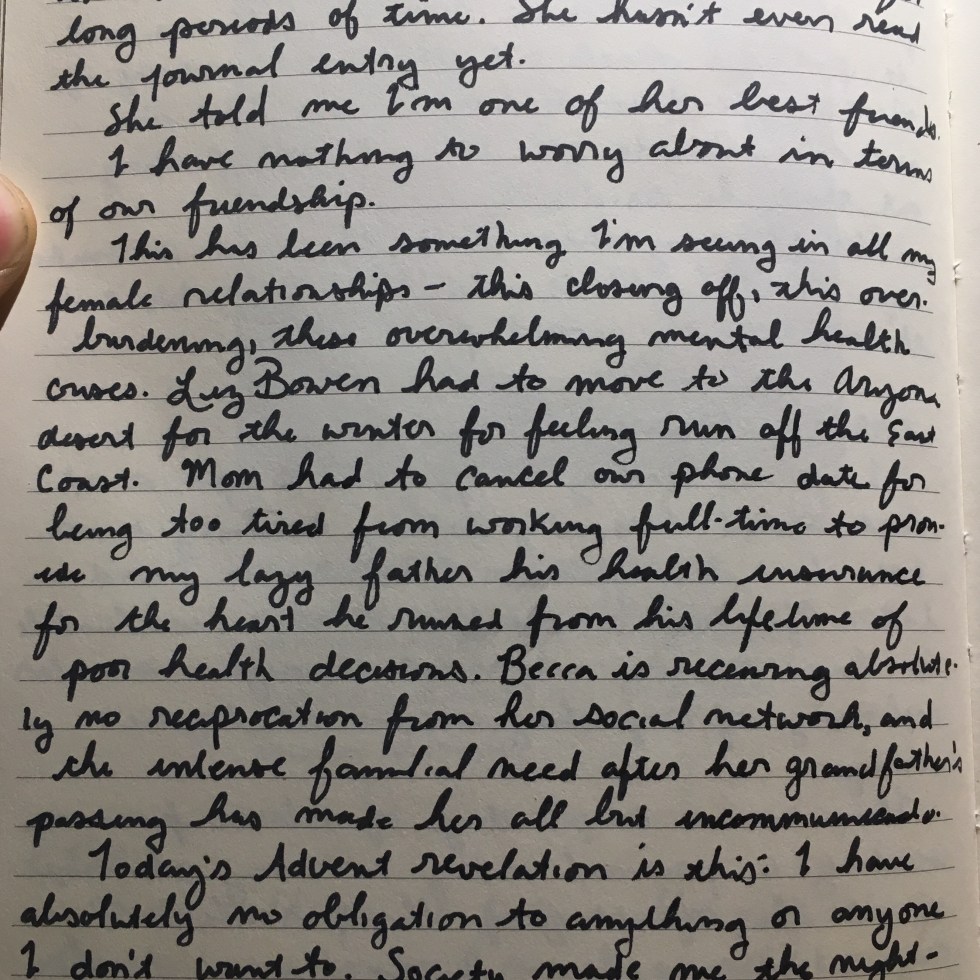 long periods of time. She hasn't even read
the journal entry yet.
She told me I'm one of her best friends.
I have nothing to worry about in terms
of our friendship.
This has been something I'm seeing in all my
female relationships – this closing off, this over-
burdening, these overwhelming mental health
crises. Liz Bowen had to move to the Arizona
desert for the winter for feeling run off the East
Coast. Mom had to cancel our phone date for
being too tired from working full-time to prov-
ide my lazy father his health insurance
for the heart he ruined from his lifetime of
poor health decisions. Becca is receiving absolute-
ly no reciprocation from her social network, and
the intense familial need after her grandfather's
passing has made her all but incommunicado.
Today's Advent revelation is this: I have
absolutely no obligation to anything or anyone
I don't want to. Society made me the night-